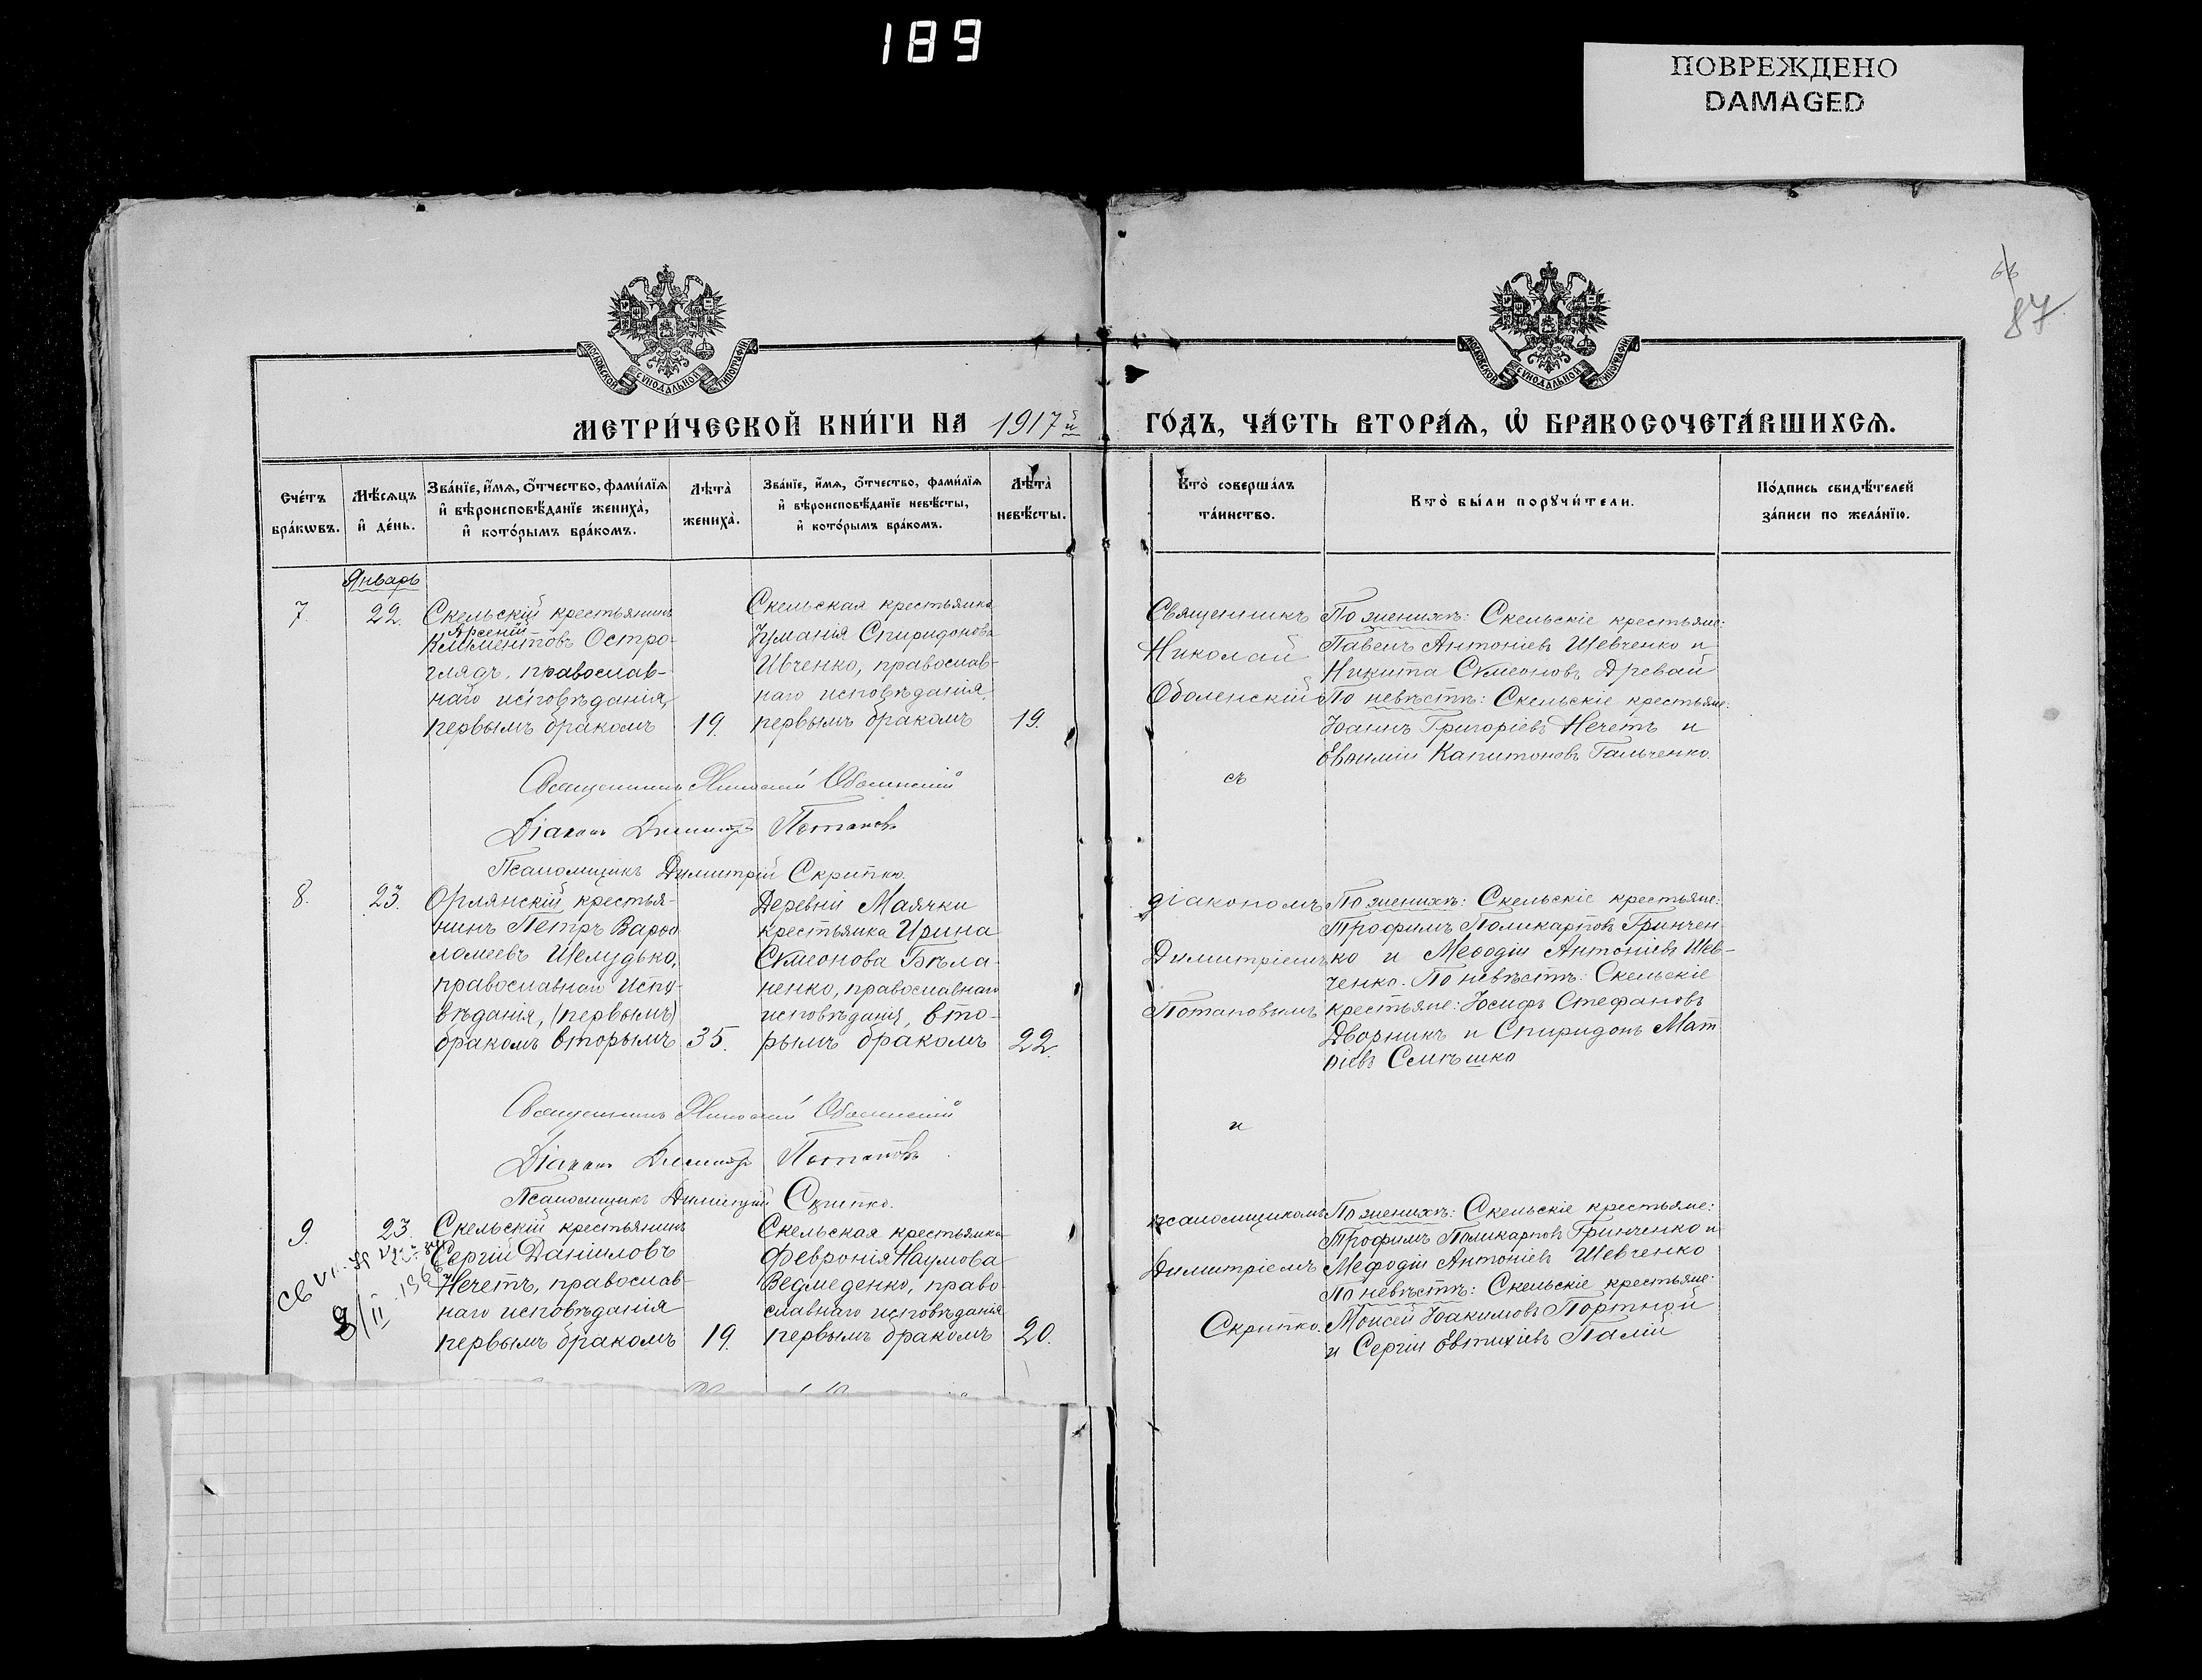 189
ПОВРЕЖДЕНО
DAMAGED
66
87
МОСКОВСКОЙ СѴНОДАЛЬНОЙ ТИПОГРАФІИ
МОСКОВСКОЙ СѴНОДАЛЬНОЙ ТИПОГРАФІИ
МЕТРИ́ЧЕСКОЙ КНИ́ГИ НА 1917й
ГО́ДЪ, ЧА́СТЬ ВТОРА́Я, Ѡ҆ БРАКОСОЧЕТА́ВШИХСЯ.
Сче́тъ бра́кѡвъ.
Мѣ́сяцъ и҆ де́нь.
Зва́нїе, и҆́мя, ѻ҆́тчество, фами́лїя
и҆ вѣроисповѣ́данїе жениха̀,
и҆ кото́рымъ бра́комъ.
Лѣта̀ жениха̀.
Зва́нїе, и҆́мя, ѻ҆́тчество, фами́лїя
и҆ вѣроисповѣ́данїе невѣ́сты,
и҆ кото́рымъ бра́комъ.
Лѣта̀ невѣ́сты.
Кто̀ соверша́лъ
та́инство.
Кто̀ бы́ли порꙋчи́тели.
По́дпись свидѣ́телей
за́писи по жела́нїю.
Январь
7.
22.
Скельскій крестьянинъ
Арсеній
Климентовъ Остро-
глядъ, православ-
наго исповѣданія,
первымъ бракомъ
19.
Скельская крестьянка
Іуманія Спиридонова
Ивченко, православ-
наго исповѣданія,
первымъ бракомъ
19.
Священникъ
Николай
Оболенскій
съ
По женихѣ: Скельскіе крестьяне:
Павелъ Антоніевъ Шевченко и
Никита Сѵмеоновъ Древай
По невѣстѣ: Скельскіе крестьяне:
Іоаннъ Григоріевъ Нечетъ и
Евѳимій Капитоновъ Гальченко.
Священникъ Николай Оболенскій
Діаконъ Димитрій Потаповъ
Псаломщикъ Димитрій Скрипко.
8.
23.
Орлянскій крестья-
нинъ Петръ Варѳо
ломеевъ Шелудько,
православнаго испо-
вѣданія, (первымъ)
бракомъ вторымъ
35.
Деревни Маячки
крестьянка Ирина
Сѵмеонова Бѣла-
ненко, православнаго
исповѣданія, вто-
рымъ бракомъ
22.
діакономъ
Димитріемъ
Потаповымъ
и
По женихѣ: Скельскіе крестьяне:
Трофимъ Поликарповъ Гринчен-
ко и Меѳодій Антоніевъ Шев-
ченко. По невѣстѣ: Скельскіе
крестьяне: Іосифъ Стефановъ
Дворникъ и Спиридонъ Мат-
ѳіевъ Семѣшко
Священникъ Николай Оболенскій
Діаконъ Димитрій Потаповъ
Псаломщикъ Димитрій Скрипко.
9.
23.
Скельскій крестьянинъ
Сергій Даніиловъ
Нечетъ, православ-
наго исповѣданія
первымъ бракомъ
19.
Скельская крестьянка
Февронія Наумова
Ведмеденко, право-
славнаго исповѣданія
первымъ бракомъ
20.
псаломщикомъ
Димитріемъ
Скрипко.
По женихѣ: Скельскіе крестьяне:
Трофимъ Поликарповъ Гринченко и
Мефодій Антоніевъ Шевченко
По невѣстѣ: Скельскіе крестьяне:
Моисей Іоакимовъ Портной
и Сергій Евтихіевъ Палій